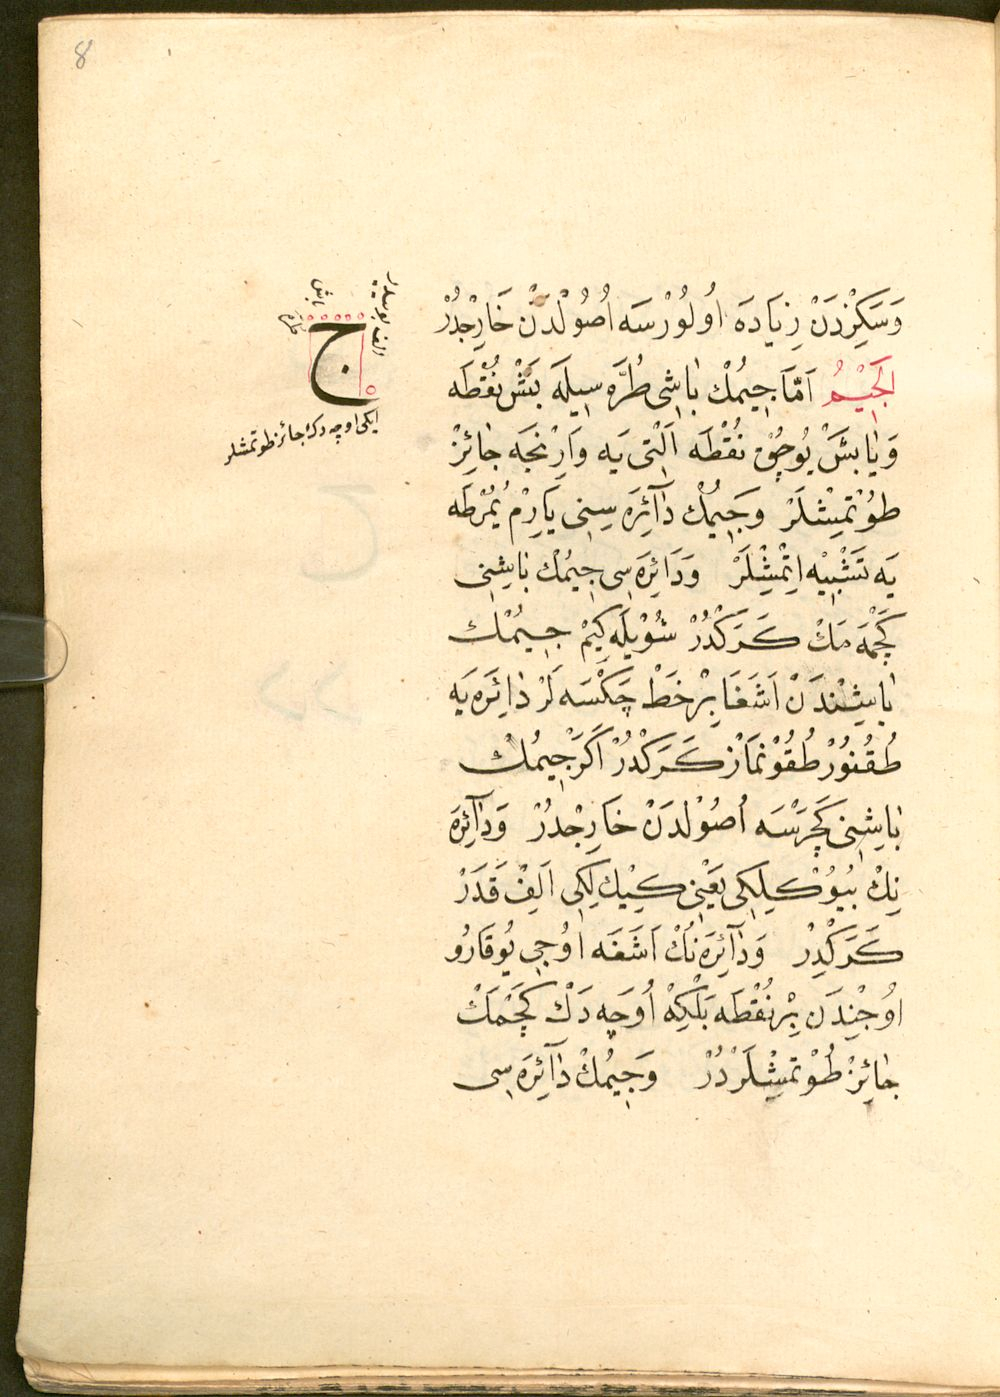 8
وَسَكِزْدَنْ زِيَادَه اُولُوْرْسَه اُصُوْلْدَنْ خَارِجْدُرْ
اَلْجِيْمُ اَمَّا جِيمُكْ بَاشِى طُرَّه سِيلَه بَشْ نُقْطَه
وَيَا بَشْ بُوچُقْ نُقْطَه اَلْتِى يَه وَارِنْجَه جَائِزْ
طُوْتْمِشْلَرْ وَجِيمُكْ دَآئِرَه سِنِى يَارِمْ يُمُرْطَه
يَه تَشْبِيْه اِتْمِشْلَرْ وَدَائِرَه سِى جِيمُكْ بَاشِنِى
كَچْمَه مَكْ كَرَكْدُرْ شُوْيْلَه كِيمْ جِيمُكْ
بَاشِنْدَنْ اَشَغَا بِرْ خَطْ چَكْسَه لَرْ دَائِرَه يَه
طُقُنُوْرْ طُقُوْنْمَازْ كَرَكْدُرْ اَكَرْ جِيمُكْ
بَاشِنِى كَچَرْسَه اُصُوْلْدَنْ خَارِجْدُرْ وَدَآئِرَه
نِكْ بُيُوْكْلِكِى يَعْنِى كِيْكْلِكِى اَلِفْ قَدَرْ
كَرَكْدِرْ وَدَآئِرَه نُكْ اَشَغَه اُوجِى يُوقَارُو
اُوجِنْدَنْ بِرْ نُقْطَه بَلْكِه اُوچَه دَكْ كَچْمَكْ
جَائِزْ طُوْتْمِشْلَرْدُرْ وَجِيمُكْ دَآئِرَه سِى
باش
طره
الف بويدر
ج
ايكى اوچه دك جائز طوتمشلر